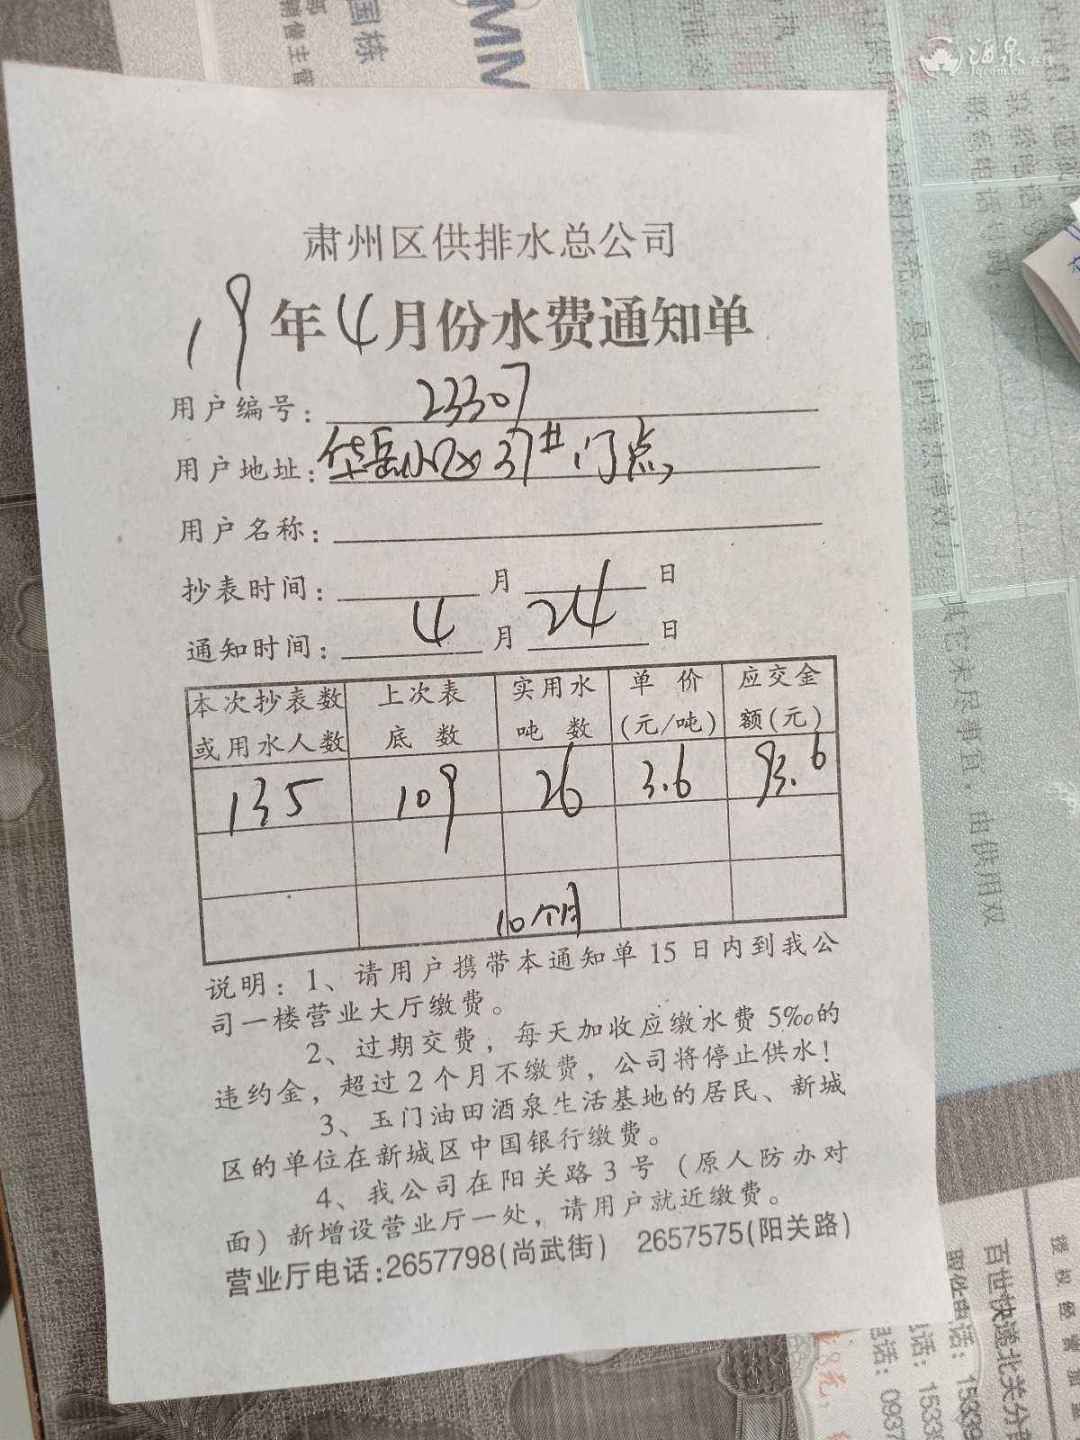 国栋
MN
酒泉
肃州区供排水总公司
19年4月份水费通知单
用户编号：23307
用户地址：华岳小区37#门点
用户名称：
抄表时间： 月 日
通知时间：4月24日
本次抄表数或用水人数 上次表底数 实用水吨数 单价(元/吨) 应交金额(元)
135 109 26 3.6 93.6
10个月
说明：1、请用户携带本通知单15日内到我公
司一楼营业大厅缴费。
2、过期交费，每天加收应缴水费5‰的
违约金，超过2个月不缴费，公司将停止供水！
3、玉门油田酒泉生活基地的居民、新城
区的单位在新城区中国银行缴费。
4、我公司在阳关路3号（原人防办对
面）新增设营业厅一处，请用户就近缴费。
营业厅电话:2657798(尚武街) 2657575(阳关路)
其它未尽事宜，由供用双
百世快递北关分